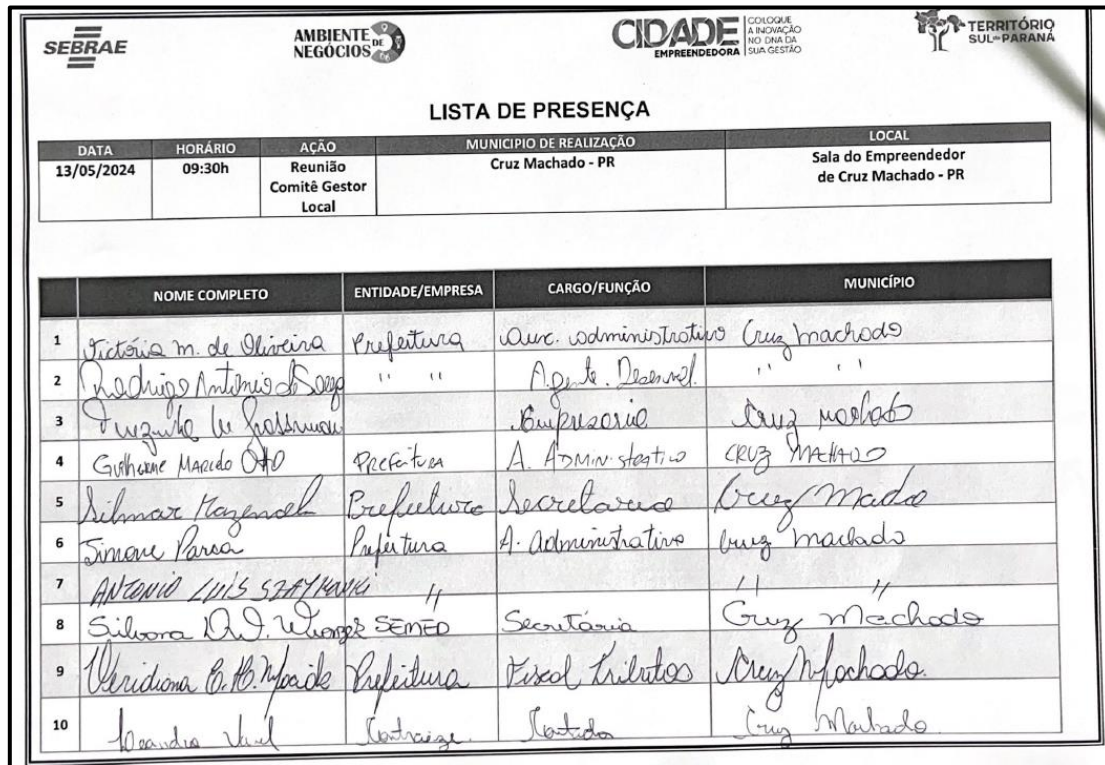 SEBRAE
AMBIENTE DE NEGÓCIOS
CIDADE EMPREENDEDORA
COLOQUE A INOVAÇÃO NO DNA DA SUA GESTÃO
TERRITÓRIO SUL-PARANÁ
LISTA DE PRESENÇA
DATA HORÁRIO AÇÃO MUNICIPIO DE REALIZAÇÃO LOCAL
13/05/2024 09:30h Reunião Cruz Machado - PR Sala do Empreendedor
Comitê Gestor de Cruz Machado - PR
Local
NOME COMPLETO ENTIDADE/EMPRESA CARGO/FUNÇÃO MUNICÍPIO
1 Victória m. de Oliveira Prefeitura aux. administrativo Cruz machado
2 Rodrigo Antonio de Souza " " Agente. Desenvol. " "
3 Empresaria Cruz machado
4 Guilherme Otto Prefeitura A. Administrativo CRUZ MACHADO
5 Silmar Prefeitura Secretario Cruz
6 Simone Prefeitura A. administrativo Cruz machado
7 ANTONIO LUIS " " "
8 SEMED Secretária Cruz Machado
9 Veridiana Prefeitura Fiscal Tributos Cruz Machado.
10 Leandro Cruz Machado